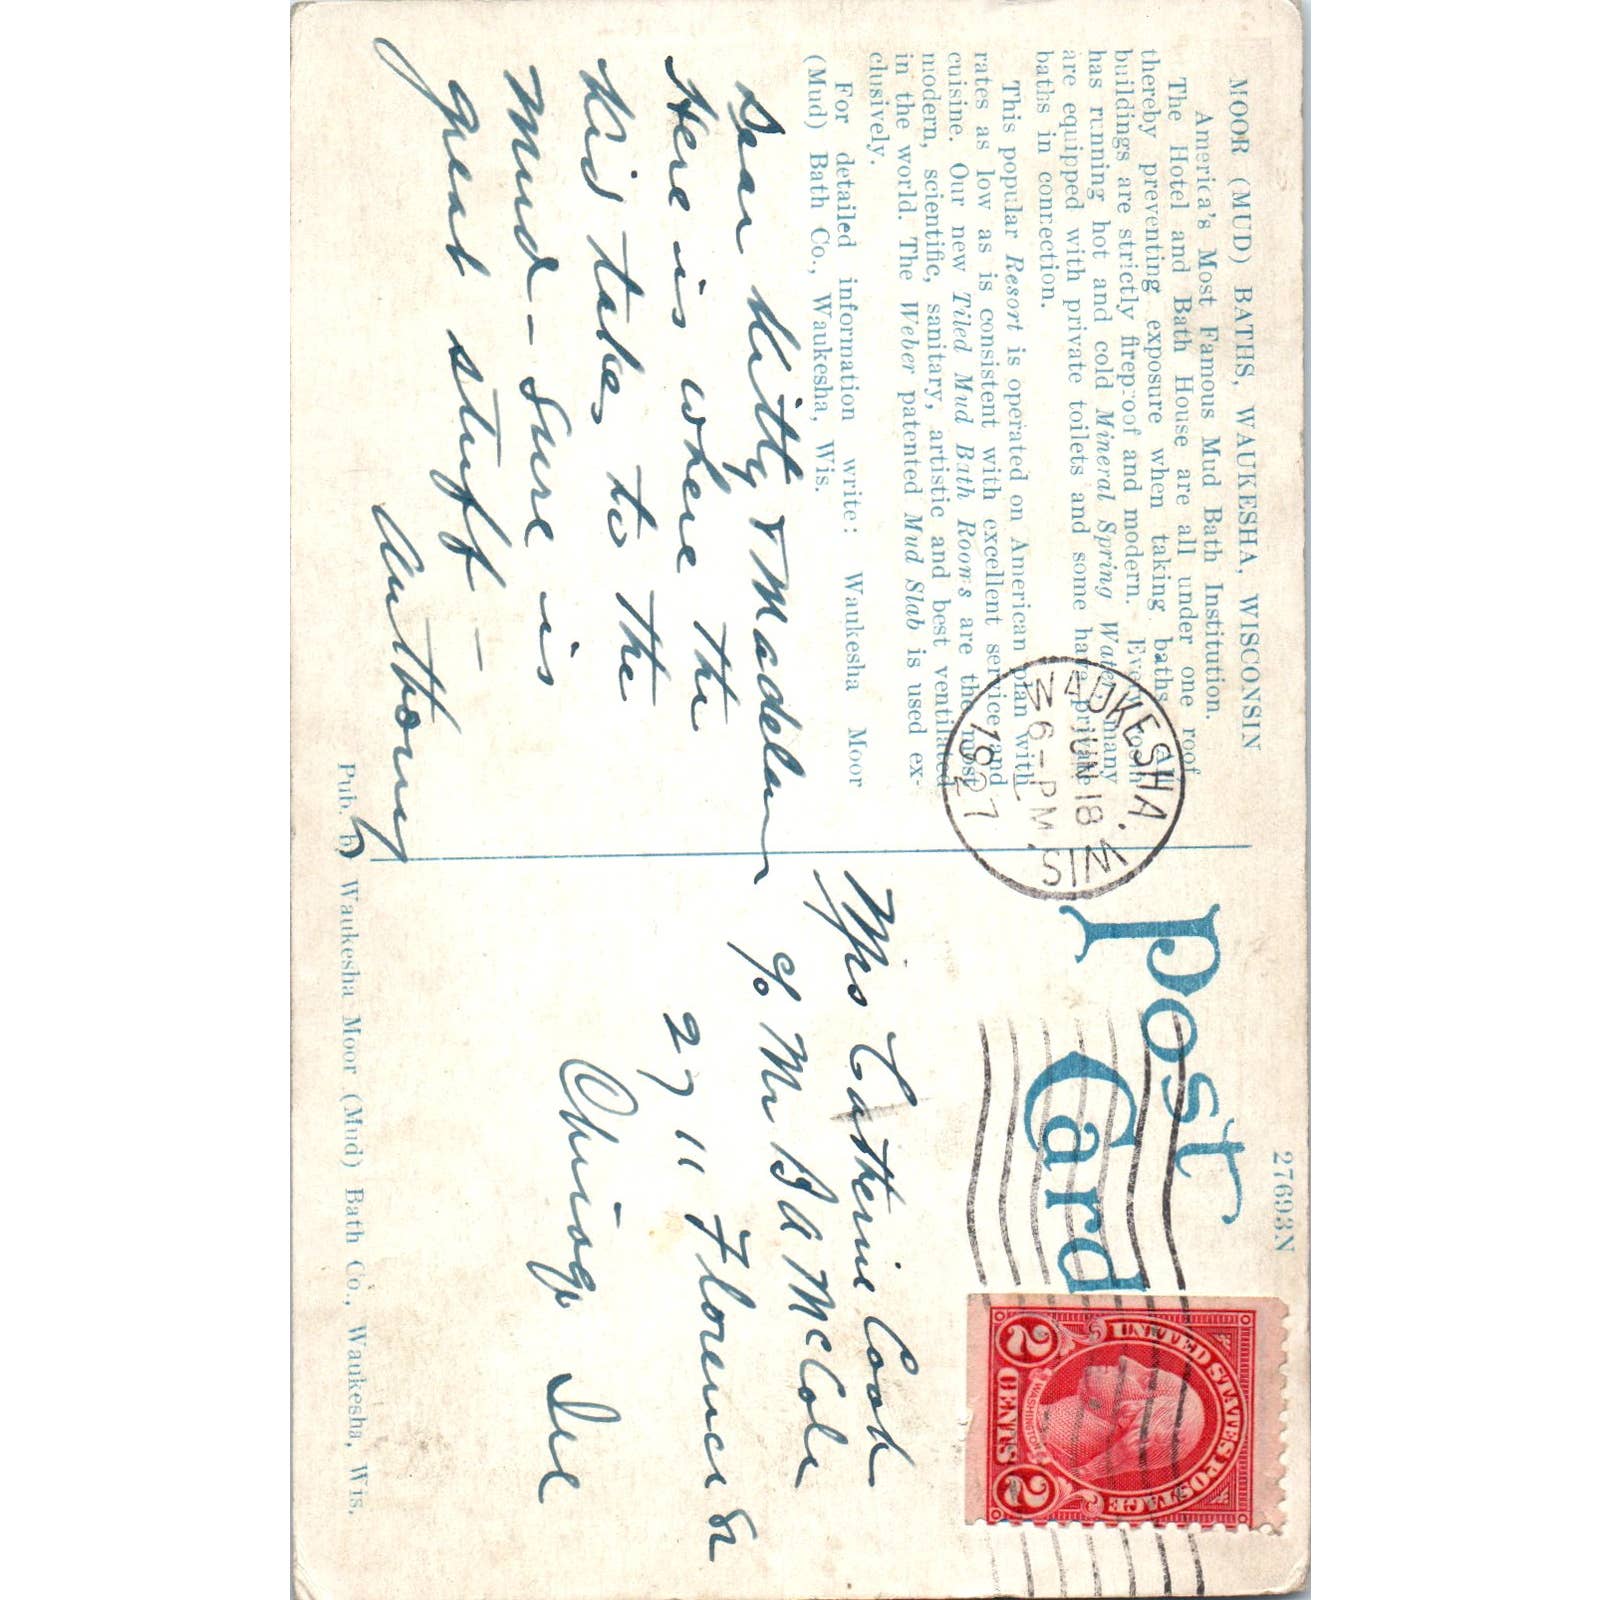 MOOR (MUD) BATHS, WAUKESHA, WISCONSIN
America's Most Famous Mud Bath Institution.
The Hotel and Bath House are all under one roof
thereby preventing exposure when taking baths. All
buildings are strictly fireproof and modern. Every room
has running hot and cold Mineral Spring Water, many
are equipped with private toilets and some have private
baths in connection.
This popular Resort is operated on American plan with
rates as low as is consistent with excellent service and
cuisine. Our new Tiled Mud Bath Rooms are the most
modern, scientific, sanitary, artistic and best ventilated
in the world. The Weber patented Mud Slab is used ex-
clusively.
For detailed information write: Waukesha Moor
(Mud) Bath Co., Waukesha, Wis.
Dear Kitty & Madelen
Here is where the
Kid takes to the
Mud - Sure is
great stuff -
Anthony
WAUKESHA, WIS.
JUN 18
6-PM
1927
Post
Card
27693N
UNITED STATES POSTAGE
WASHINGTON
2 CENTS 2
Mrs Catherine Cook
c/o Mr B A McCole
2711 Florence St
Chicago Ill
Pub. by Waukesha Moor (Mud) Bath Co., Waukesha, Wis.